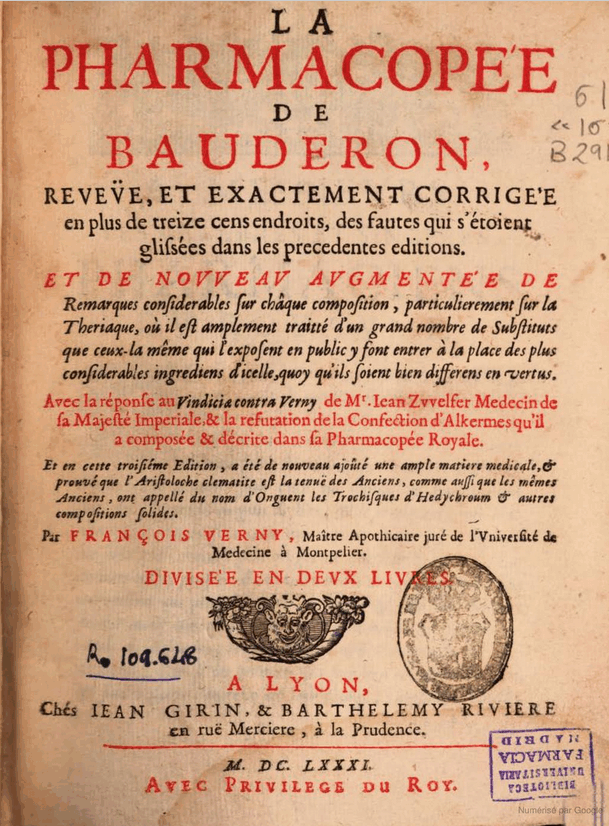 LA
PHARMACOPE'E
DE
BAUDERON,
REVEÜE, ET EXACTEMENT CORRIGE'E
en plus de treize cens endroits, des fautes qui s'étoient
glissées dans les precedentes editions.
ET DE NOVVEAV AVGMENTE'E DE
Remarques considerables sur châque composition, particulierement sur la
Theriaque, où il est amplement traitté d'un grand nombre de Substituts
que ceux-la même qui l'exposent en public y font entrer à la place des plus
considerables ingrediens d'icelle, quoy qu'ils soient bien differens en vertus.
Avec la réponse au Vindicia contra Verny de Mr. Iean Zvvelfer Medecin de
sa Majesté Imperiale, & la refutation de la Confection d'Alkermes qu'il
a composée & décrite dans sa Pharmacopée Royale.
Et en cette troisiéme Edition, a été de nouveau ajoûté une ample matiere medicale, &
prouvé que l'Aristoloche clematite est la tenuë des Anciens, comme aussi que les mêmes
Anciens, ont appellé du nom d'Onguent les Trochisques d'Hedychroum & autres
compositions solides.
Par FRANÇOIS VERNY, Maître Apothicaire juré de l'Vniversité de
Medecine à Montpelier.
DIVISE'E EN DEVX LIVRES.
A LYON,
Chés IEAN GIRIN, & BARTHELEMY RIVIERE
en ruë Merciere, à la Prudence.
M. DC. LXXXI.
AVEC PRIVILEGE DU ROY.
61
« 15
B 291
R. 109.648
BIBLIOTECA
UNIVERSITARIA
FARMACIA
MADRID
Numérisé par Google